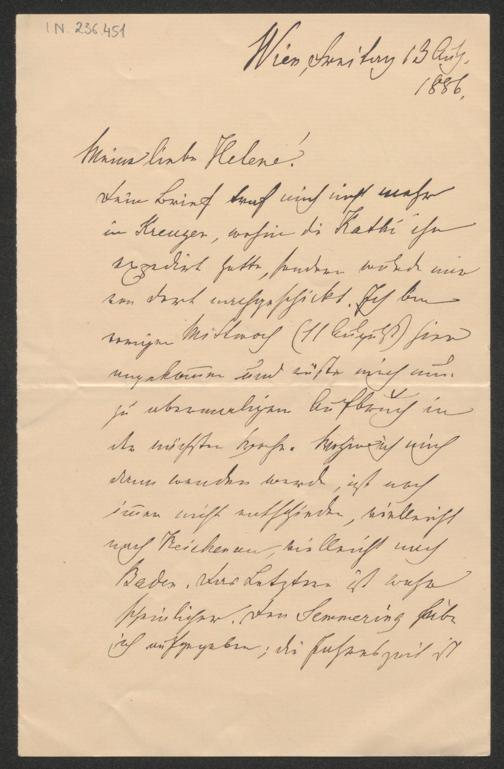 I N. 236.451
Wien, Freitag 13 Aug.
1886.
Meine liebe Helene!
Dein Brief traf mich nicht mehr
in Kreuzen, wohin die Kathi ihn
expedirt hatte, sondern wurde mir
von dort nachgeschickt. Ich bin
vorigen Mittwoch (11 August) hier
angekommen und rüste mich nun
zu abermaligen Aufbruch in
der nächsten Woche. Wohin ich mich
dann wenden werde, ist noch
immer nicht entschieden, vielleicht
nach Reichenau, vielleicht nach
Baden. Das Letztere ist wahr
scheinlicher. Den Semmering habe
ich aufgegeben; die Jahreszeit ist